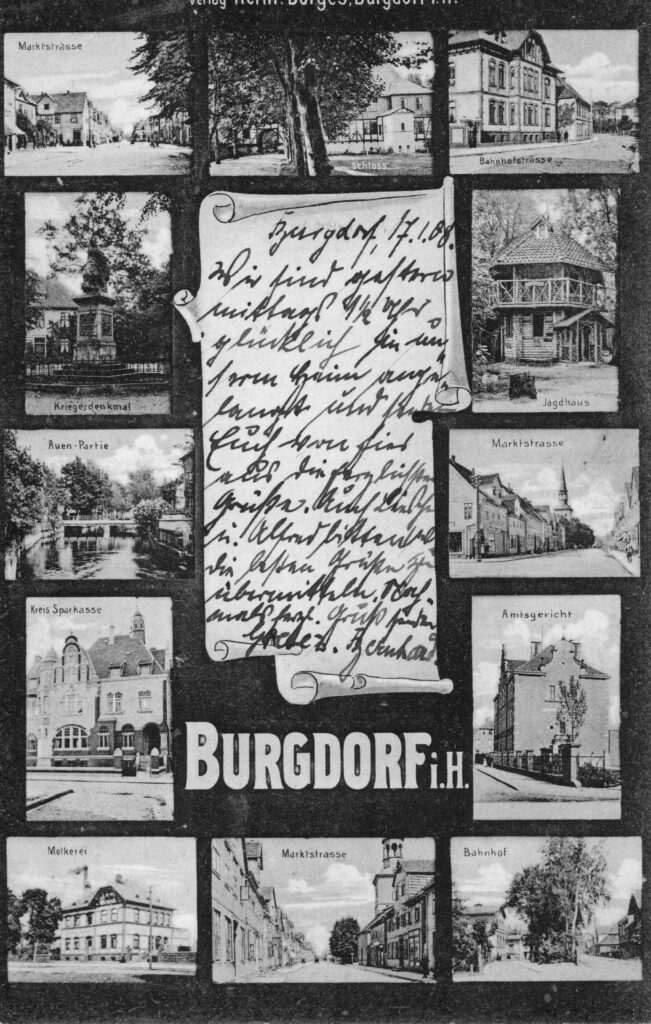 Verlag Herm. Borges, Burgdorf i. H.
Marktstrasse
Schloss
Bahnhofstrasse
Kriegerdenkmal
Burgdorf, 17.1.08.
Wir sind gestern
mittags 1/2 Uhr
glücklich in un
serm Heim ange
langt und senden
Euch von hier
aus die herzlichsten
Grüße. Auch
u. Alfred bitten
die besten Grüße zu
übermitteln. Noch
mals herzl. Gruß senden
u. Bernhard.
Jagdhaus
Auen-Partie
Marktstrasse
Kreis Sparkasse
Amtsgericht
BURGDORF i. H.
Molkerei
Marktstrasse
Bahnhof